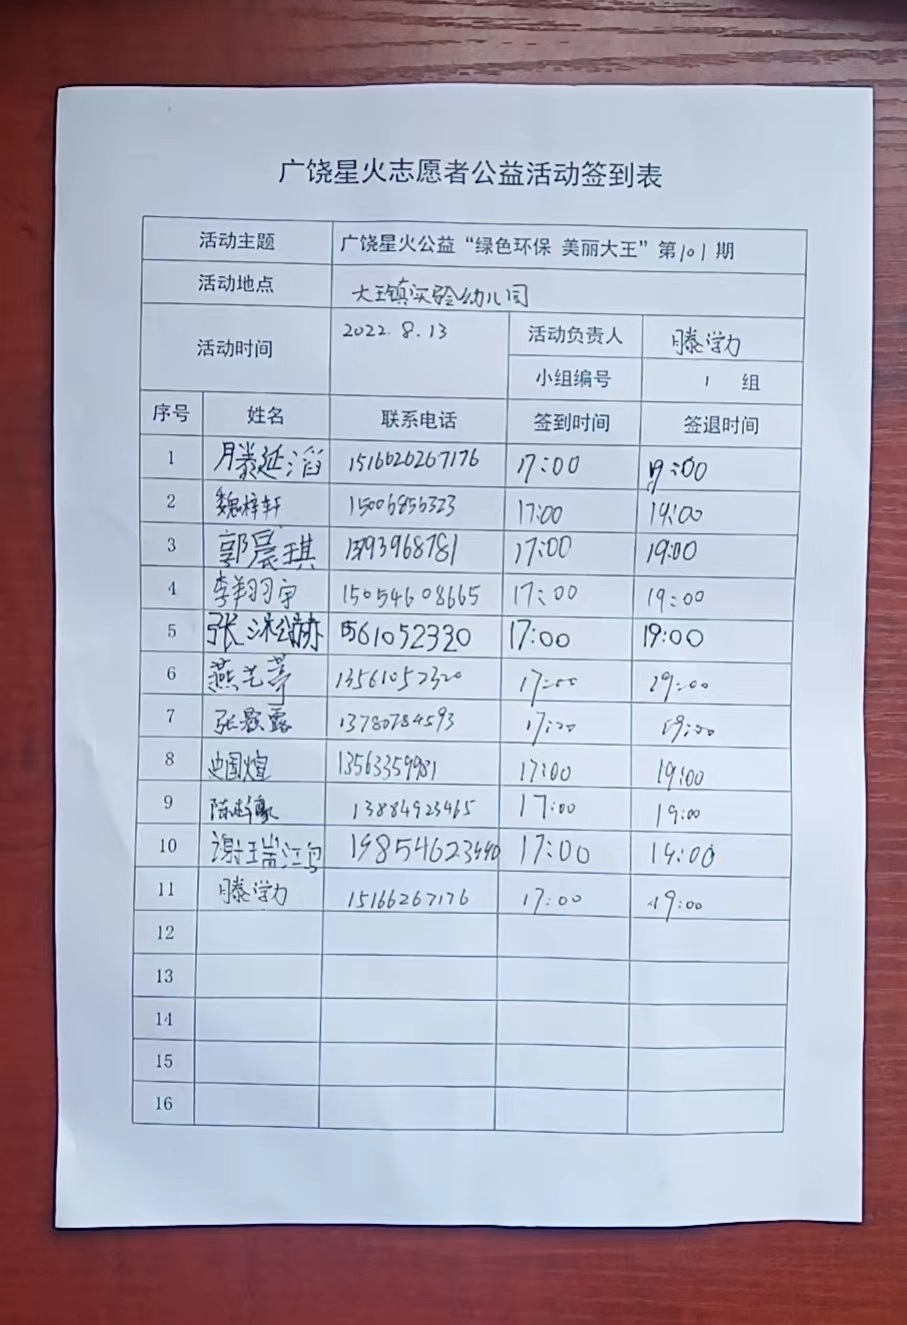 广饶星火志愿者公益活动签到表
活动主题 广饶星火公益“绿色环保 美丽大王”第101期
活动地点 大王镇实验幼儿园
活动时间 2022.8.13 活动负责人 滕学力
小组编号 1 组
序号 姓名 联系电话 签到时间 签退时间
1 滕延滔 1516020267176 17:00 19:00
2 魏梓轩 15006856323 17:00 19:00
3 郭晨琪 17:00 19:00
4 李翔宇 15054608665 17:00 19:00
5 张 17:00 19:00
6 燕艺菁 13561052320 17:00 19:00
7 张歆露 13780784593 17:00 19:00
8 史国煊 13563359981 17:00 19:00
9 陈 13884923465 17:00 19:00
10 谢瑞 17:00 19:00
11 滕学力 15166267176 17:00 19:00
12
13
14
15
16